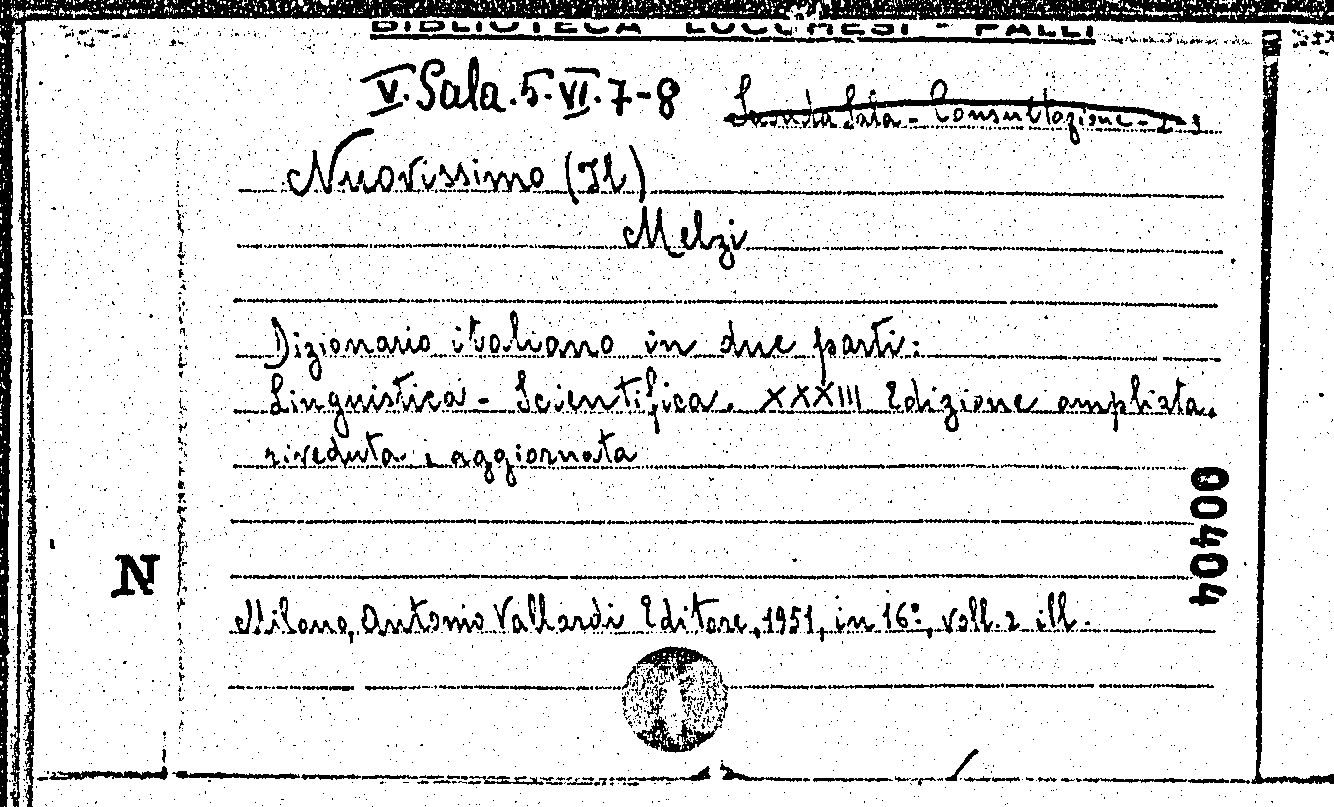 BIBLIOTECA LUCCHESI - PALLI
V. Sala. 5. VI. 7-8
Seconda Sala - Consultazione - 2-3
Nuovissimo (Il)
Melzi
Dizionario italiano in due parti:
Linguistica - Scientifica. XXXIII Edizione ampliata,
riveduta e aggiornata
00404
N
Milano, Antonio Vallardi Editore, 1951, in 16°, voll. 2 ill.